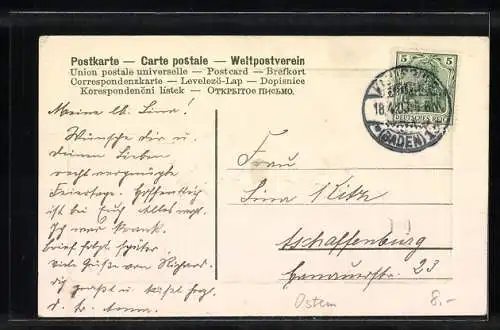 Postkarte — Carte postale — Weltpostverein
Union postale universelle — Postcard — Brefkort
Correspondenzkarte — Levelező-Lap — Dopisnice
Korespondenční lístek — ОТКРЫТОЕ ПИСЬМО.
5 5
DEUTSCHES REICH
18.4.03
(BADEN)
Meine lb. Lina!
Wünsche dir u.
deinen Lieben
recht vergnügte
Feiertage. Hoffentlich
ist bei Euch Alles wohl.
Ich war krank.
Brief folgt später
viele Grüße von Richard.
Frau
Lina
Aschaffenburg
23
Ostern
8,-